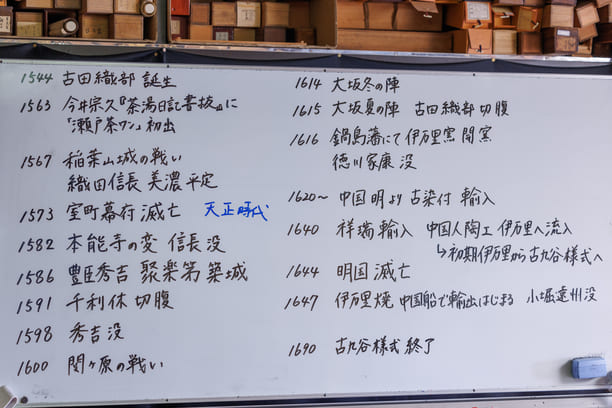 1544 古田織部 誕生
1563 今井宗久『茶湯日記書抜』に
「瀬戸茶ワン」初出
1567 稲葉山城の戦い
織田信長 美濃平定
1573 室町幕府 滅亡 天正時代
1582 本能寺の変 信長没
1586 豊臣秀吉 聚楽第 築城
1591 千利休 切腹
1598 秀吉 没
1600 関ヶ原の戦い
1614 大坂冬の陣
1615 大坂夏の陣 古田織部 切腹
1616 鍋島藩にて 伊万里窯 開窯
徳川家康 没
1620～ 中国 明より 古染付 輸入
1640 祥瑞 輸入 中国人陶工 伊万里へ流入
↳初期伊万里から古九谷様式へ
1644 明国 滅亡
1647 伊万里焼 中国船で輸出はじまる 小堀遠州没
1690 古九谷様式 終了